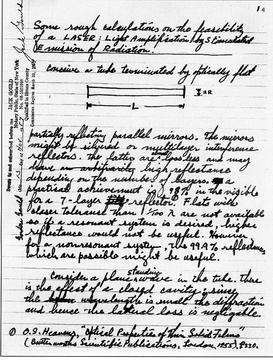 1
Some rough calculations on the feasibility
of a LASER: Light Amplification by Stimulated
Emission of Radiation.
conceive a tube terminated by optically flat
L
partially reflecting parallel mirrors. The mirrors
might be silvered or multilayer interference
reflectors. The latter are lossless and may
have high reflectance
depending on the number of layers. A
practical achievement is 98% in the visible
for a 7-layer reflector. Flats with
closer tolerance than 1/100 λ are not available
so if a resonant system is desired, higher
reflectance would not be useful. However
for a nonresonant system, the 99.9% reflectances
which are possible might be useful.
Consider a plane standing wave in the tube. There
is the effect of a closed cavity; since
the wavelength is small the diffraction
and hence the lateral loss is negligible.
O.S. Heavens, "Optical Properties of Thin Solid Films"
(Butterworths Scientific Publications, London, 1955),
JACK GOULD
Notary Public, State of New York